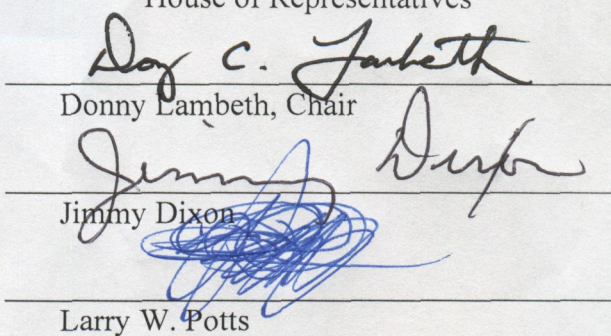 House of Representatives
Don C. Lambeth
Donny Lambeth, Chair
Jimmy Dixon
Jimmy Dixon
Larry W. Potts